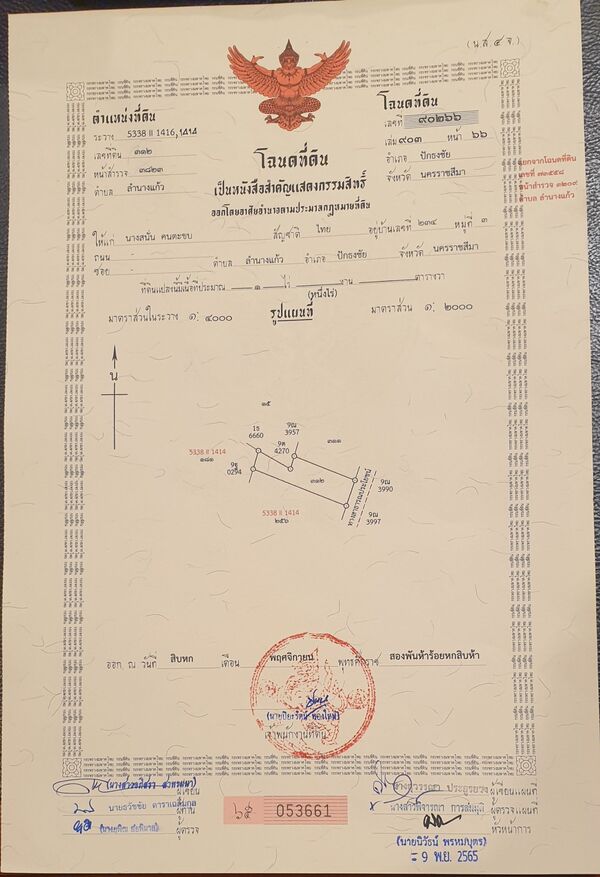 (น.ส.๔ จ.)
ตำแหน่งที่ดิน
ระวาง 5338 II 1416,1414
เลขที่ดิน ๓๑๒
หน้าสำรวจ ๓๘๒๓
ตำบล ลำนางแก้ว
โฉนดที่ดิน
เลขที่ ๙๐๒๖๖
เล่ม ๙๐๓ หน้า ๖๖
อำเภอ ปักธงชัย
จังหวัด นครราชสีมา
แยกจากโฉนดที่ดิน
เลขที่ ๗๒๕๕๘
หน้าสำรวจ ๑๒๐๙
ตำบล ลำนางแก้ว
โฉนดที่ดิน
เป็นหนังสือสำคัญแสดงกรรมสิทธิ์
ออกโดยอาศัยอำนาจตามประมวลกฎหมายที่ดิน
ให้แก่ นางสนั่น คนตะขบ สัญชาติ ไทย อยู่บ้านเลขที่ ๒๓๔ หมู่ที่ ๓
ถนน - ซอย - ตำบล ลำนางแก้ว อำเภอ ปักธงชัย จังหวัด นครราชสีมา
ที่ดินแปลงนี้มีเนื้อที่ประมาณ ๑ ไร่ - งาน - ตารางวา
(หนึ่งไร่)
มาตราส่วนในระวาง ๑: ๔๐๐๐ รูปแผนที่ มาตราส่วน ๑: ๒๐๐๐
น
๑๕
1ธ
6660
9ณ
3957
๓๑๑
9ต
4270
5338 II 1414
๑๘๑
9ฐ
0294
๓๑๒
9ณ
3990
ทางสาธารณประโยชน์
5338 II 1414
๒๕๖
9ณ
3997
ออก ณ วันที่ สิบหก เดือน พฤศจิกายน พุทธศักราช สองพันห้าร้อยหกสิบห้า
เจ้าพนักงานที่ดิน
ผู้เขียน
นายธวัชชัย ดาราเฉลิมกุล ผู้ทาน
ผู้ตรวจ
053661
ผู้เขียนแผนที่
ผู้ตรวจแผนที่
หัวหน้าการ
(นายนิวัธน์ พรหมบุตร)
- 9 พ.ย. 2565